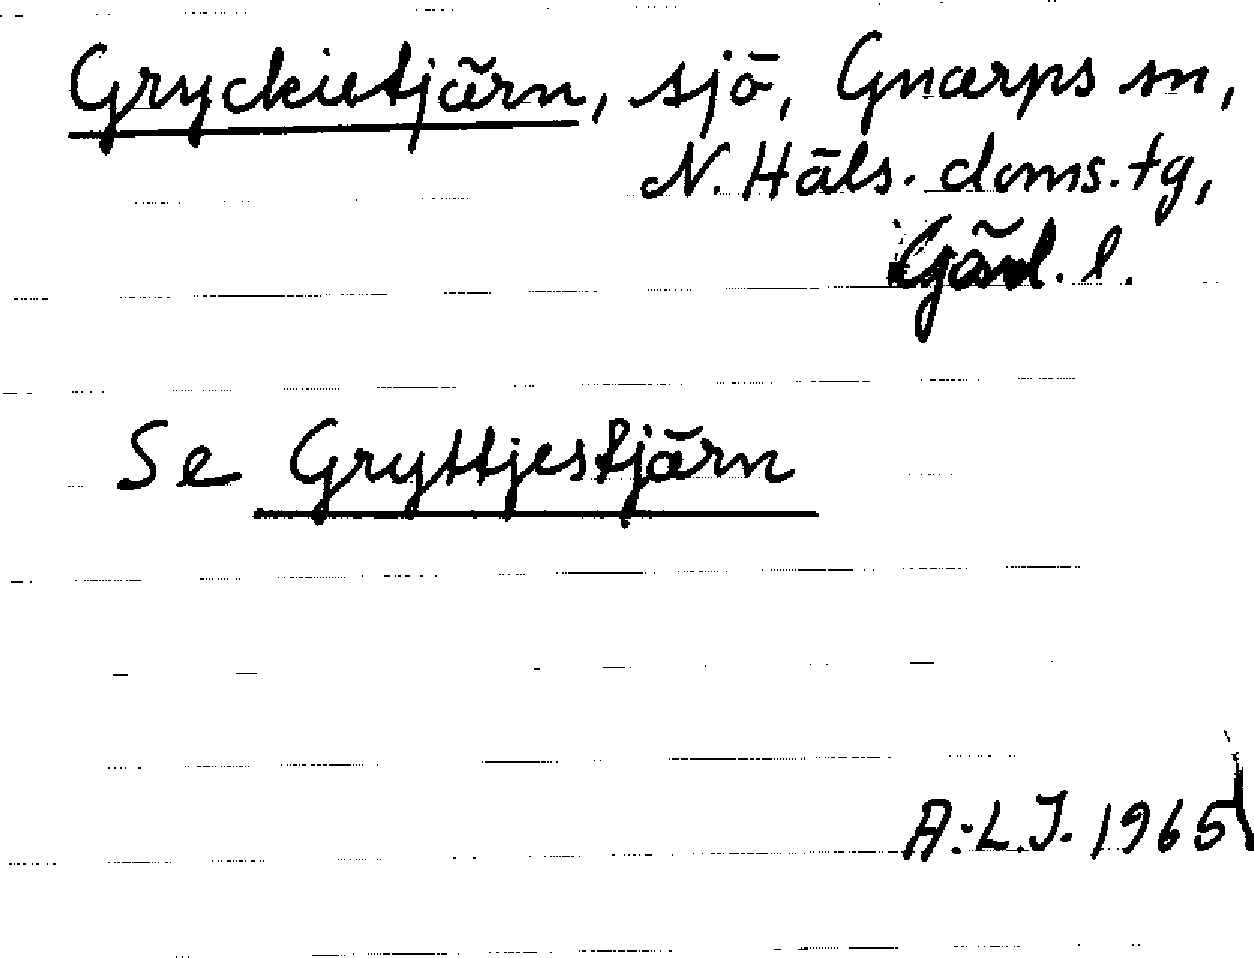 Gryckietjärn, sjö, Gnarps sn,
N. Häls. doms. tg,
Gävl. l.
Se Gryttjestjärn
A:L.J. 1965